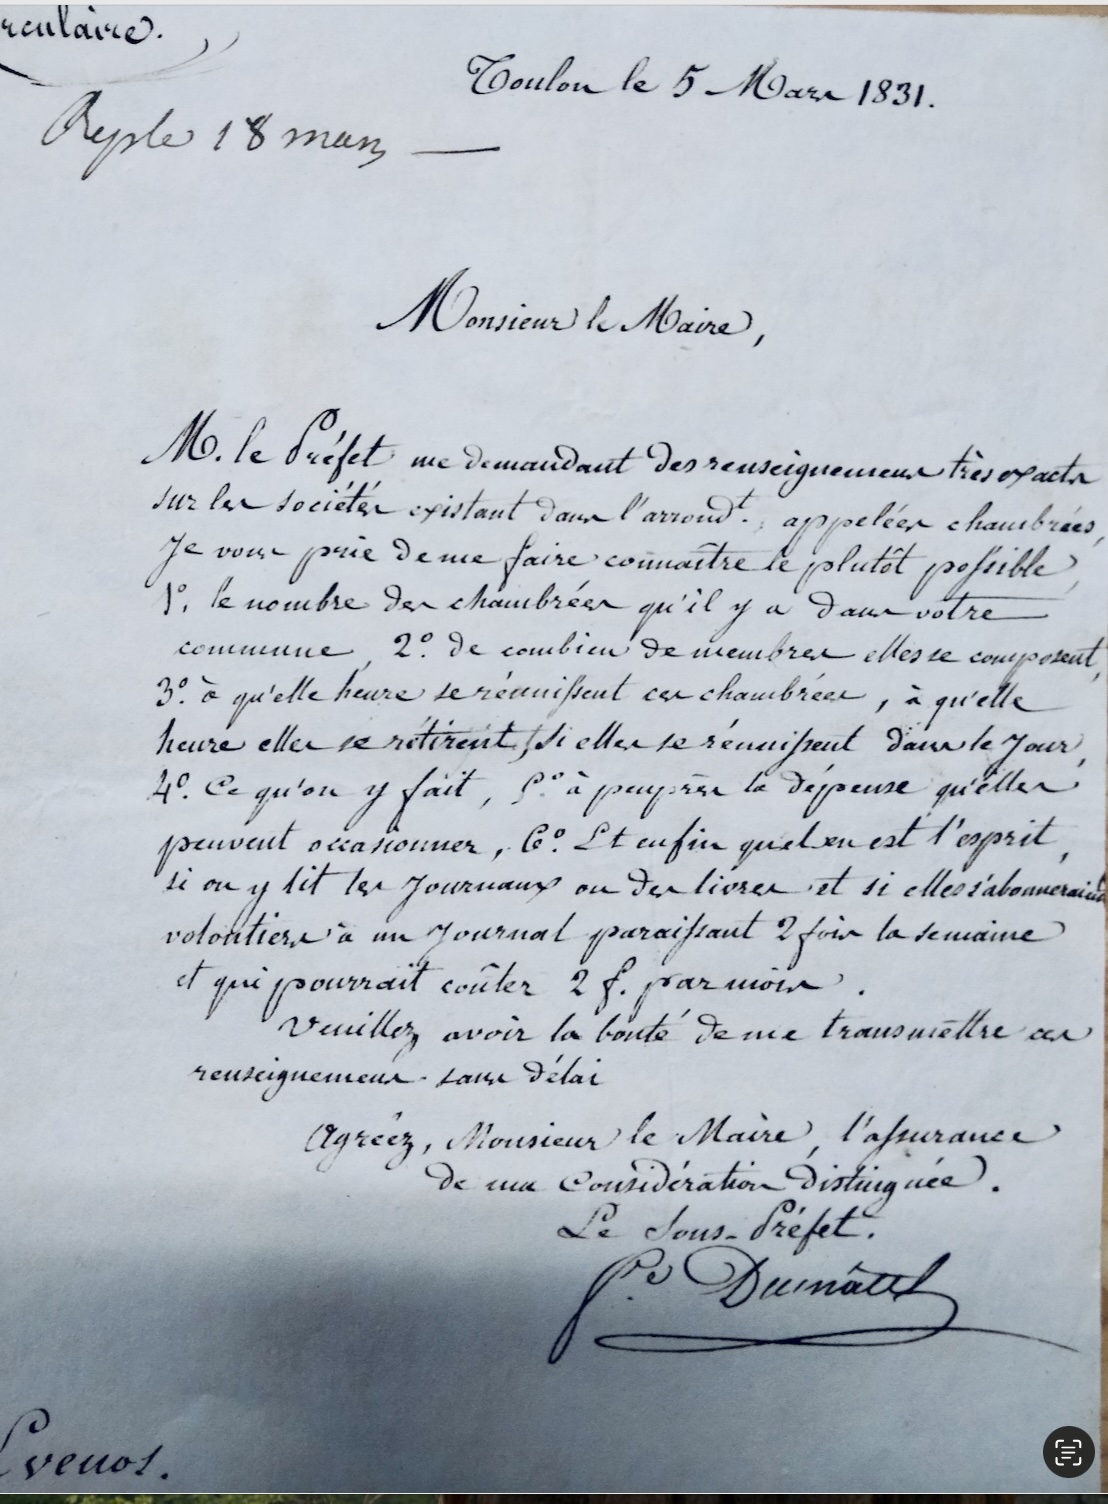 rculaire.
Toulon le 5 Mars 1831.
Rep le 18 mars
Monsieur le Maire,
M. le Préfet me demandant des renseignemens très exacts
sur les sociétés existant dans l'arrondt., appelées chambrées,
Je vous prie de me faire connaître le plutôt possible,
1º. le nombre des chambrées qu'il y a dans votre
commune, 2º. de combien de membres elles se composent,
3º. à qu'elle heure se réunissent ces chambrées, à qu'elle
heure elles se rétirent, si elles se réunissent dans le Jour,
4º. Ce qu'on y fait, 5º. à peuprès la dépense qu'elles
peuvent occasionner, 6º. Et enfin quel en est l'esprit,
si on y lit les Journaux ou des livres et si elles s'abonneraient
volontiers à un Journal paraissant 2 fois la semaine
et qui pourrait coûter 2 f. par mois.
Veuillez avoir la bonté de me transmettre ces
renseignemens sans délai
Agréez, Monsieur le Maire, l'assurance
de ma Considération Distinguée.
Le Sous-Préfet.
Evenos.